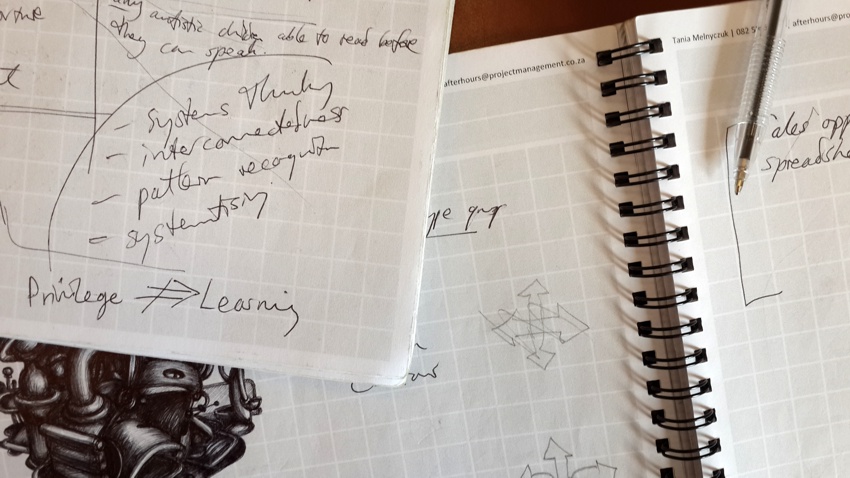 any autistic children able to read before
they can speak.
- systems thinking
- interconnectedness
- pattern recognition
- systematising
Privilege ⇏ Learning
afterhours@projectmanagement.co.za
Tania Melnyczuk | 082 5
, afterhours@pro
ales opp
spreadshe